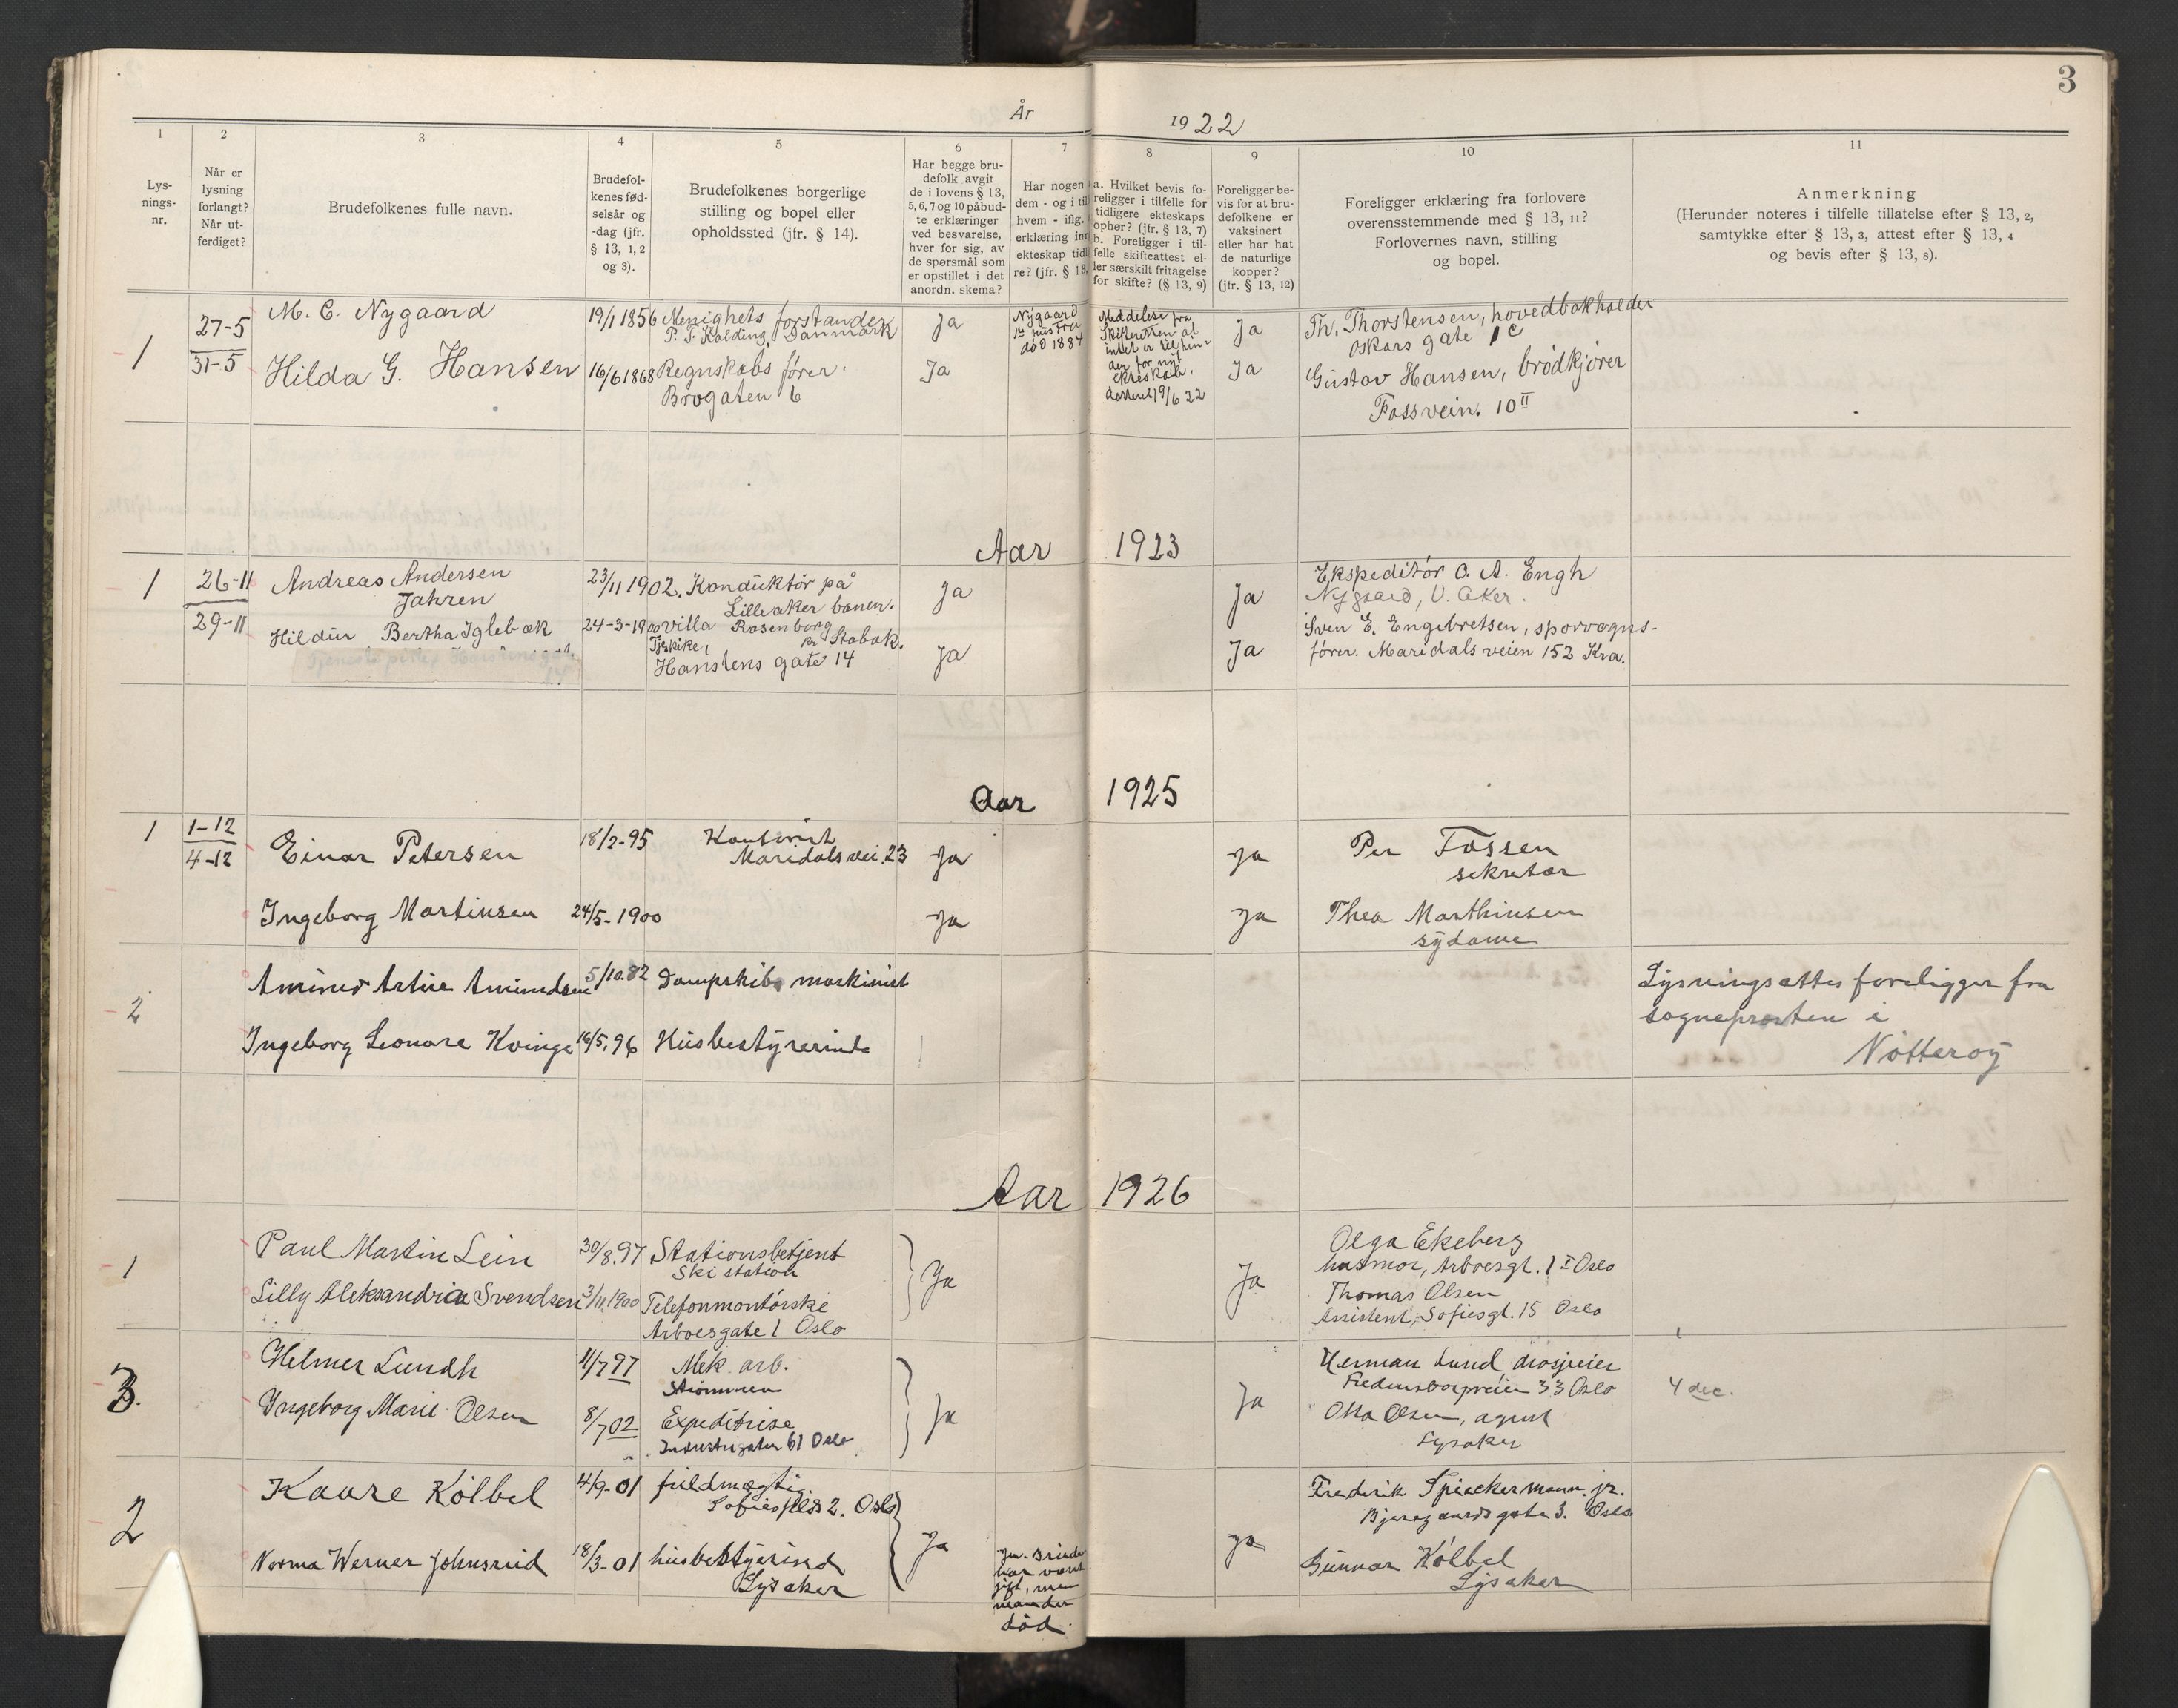 3
År 1922
1
Lys-
nings-
nr.
2
Når er
lysning
forlangt?
Når ut-
ferdiget?
3
Brudefolkenes fulle navn.
4
Brudefol-
kenes fød-
selsår og
-dag (jfr.
§ 13, 1, 2
og 3).
5
Brudefolkenes borgerlige
stilling og bopel eller
opholdssted (jfr. § 14).
6
Har begge bru-
defolk avgit
de i lovens § 13,
5, 6, 7 og 10 påbud-
te erklæringer
ved besvarelse,
hver for sig, av
de spørsmål som
er opstillet i det
anordn. skema?
7
Har nogen
dem - og i til
hvem - iflg.
erklæring inn
ekteskap tidl
re? (jfr. § 13,
8
a. Hvilket bevis fo-
religger i tilfelle for
tidligere ekteskaps
ophør? (jfr. § 13, 7)
b. Foreligger i til-
felle skifteattest el-
ler særskilt fritagelse
for skifte? (§ 13, 9)
9
Foreligger be-
vis for at bru-
defolkene er
vaksinert
eller har hat
de naturlige
kopper?
(jfr. § 13, 12)
10
Foreligger erklæring fra forlovere
overensstemmende med § 13, 11?
Forlovernes navn, stilling
og bopel.
11
Anmerkning
(Herunder noteres i tilfelle tillatelse efter § 13, 2,
samtykke efter § 13, 3, attest efter § 13, 4
og bevis efter § 13, 8).
1
27-5
31-5
M. C. Nygaard
19/1 1856
Menighets forstander
P. T. Kolding, Danmark
Ja
Nygaard
1ste hustru
død 1884
Meddelelse fra
Skifteretten at
intet er til hin-
der for nyt
ekteskab,
datteret 19/6 22
Ja
Th. Thorstensen, hovedbokholder
Oskars gate 1c
Hilda G. Hansen
16/6 1868
Regnskabs fører.
Brogaten 6
Ja
Ja
Gustav Hansen, brödkjører
Fossvein. 10 II
Aar 1923
1
26-11
29-11
Andreas Andersen
Jahren
23/11 1902.
Konduktør på
Lilleaker banen.
villa Rosenborg
pr Stabæk.
Ja
Ja
Ekspeditør O. A. Engh
Nygaard, V. Aker.
Hildur Bertha Iglebæk
24-3-1900
Hanstens gate 14
Ja
Ja
Sven E. Engebretsen, sporvogns-
fører. Maridalsveien 152 Kra.
Aar 1925
1
1-12
4-12
Einar Petersen
18/2-95
Kontorist
Maridalsvei. 23
Ja
Ja
Per Fossen
sekretær
Ingeborg Martinsen
24/5-1900
Ja
Ja
Thea Marthinsen
sydame
2
Amund Artur Amundsen
5/10.82
Dampskibs maskinist
Ingeborg Leonore Kvinge
16/5.96
Husbestyrerinde
Lysningsattes foreligger fra
sognepræsten i
Nötteröy
Aar 1926
1
Paul Martin Lein
30/8.97
Stationsbetjent
Ski station
Lilly Aleksandria Svendsen
3/11.1900
Telefonmontørske
Arboesgate 1 Oslo
Ja
Ja
Olga Ekeberg
husmor, Arboesgt. 1 I Oslo
Thomas Olsen
Assistent, Sofiesgt. 15 Oslo
3.
Helmer Lundh
11/7 97
Mek. arb.
Strømmen
Ingeborg Marie Olsen
8/7 02
Expeditrise
Industrigaten 61 Oslo
Ja
Ja
Herman Lund drosjeeier
Fredensborgveien 33 Oslo
Otto Olsen, agent
Lysaker
4 dec.
2
Kaare Kölbel
4/9-01
fuldmægtig
Sofies plass 2. Oslo
Norma Werner Johnsrud
18/3-01
husbestyerind
Lysaker
Ja
Ja. Bruden
har vært
gift, men
manden
död.
Ja
Frederik Spieckermann jr.
Bjeregaardsgate 3. Oslo
Gunnar Kölbel
Lysaker